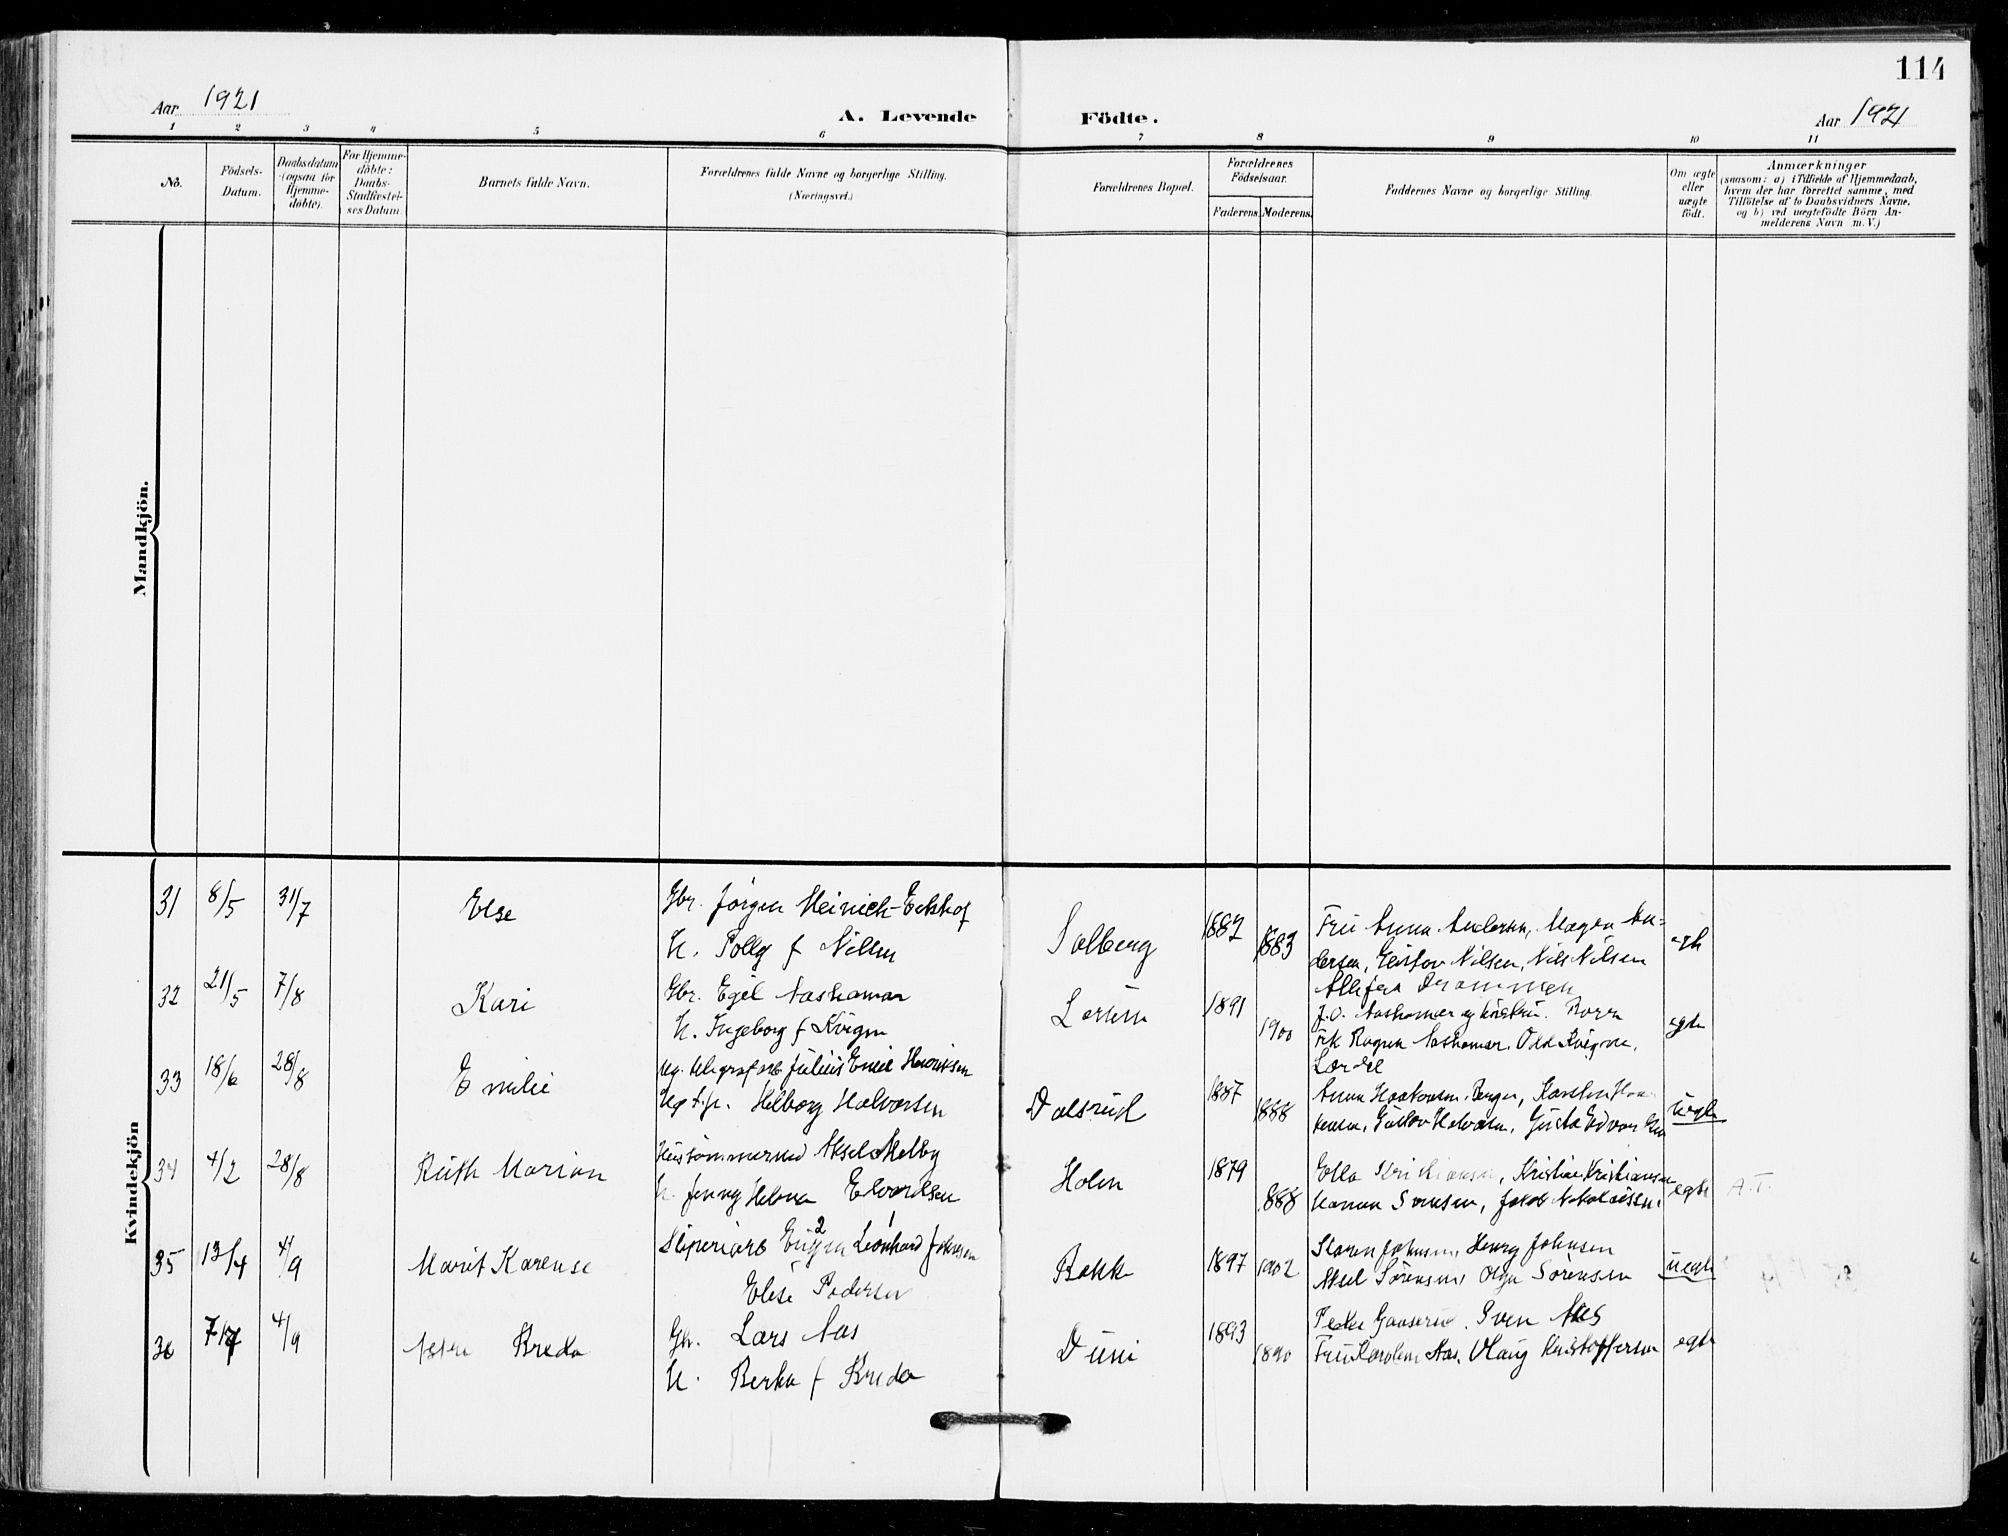 114
Aar 1921
A. Levende Födte.
Aar 1921
1 2 3 4 5 6 7 8 9 10 11
No.
Födsels-
Datum.
Daabsdatum
(ogsaa for
Hjemme-
döbte).
For Hjemme-
döbte:
Daabs-
Stadfæstel-
ses Datum.
Barnets fulde Navn.
Forældrenes fulde Navne og borgerlige Stilling.
(Næringsvei.)
Forældrenes Bopæl.
Forældrenes
Födselsaar.
Faderens. Moderens.
Faddernes Navne og borgerlige Stilling.
Om ægte
eller
uægte
födt.
Anmærkninger
(saasom: a) i Tilfælde af Hjemmedaab,
hvem der har forrettet samme, med
Tilföielse af to Daabsvidners Navne.
og b) ved uægtefödte Börn An-
melderens Navn m. V.)
Mandkjön.
Kvindekjön
31 8/5 31/7 Else
Gbr. Jörgen Heinrich Eckhof
H. Polly f Nilsen
Solberg 1882 1883
Fru Anna Andersen, Magna An-
dersen, Gustav Nilsen, Nils Nilsen
Alle fra Drammen
egte
32 21/5 7/8 Kari
Gbr. Egil Aashamar
H. Ingeborg f Kvigne
1891 1900
J.O. Aashamar og hustru.
Frk Ragna Aashamar. Odd Kvigne,
Lærdal
egte
33 18/6 28/8 Emilie
ug. telegrafarb Julius Emil Henriksen
Ug t.p. Helborg Halvorsen
Dalsrud 1887 1888
Anna Haakonsen. Berger, Karsten
Gustav Halvorsen,
uegte
34 4/2 28/8 Ruth Marion
Hustömmermand Aksel Melby
H. Jenny Helene Edvardsen
Holm 1879 1888
Kristian Kristiansen
Hanna Svensen, Jakob Nikolaisen.
egte A.T.
35 13/4 4/9 Marit Karense
Sliperiarb Eugen Leonhard Johnsen
Elise Pedersen
Bakke 1897 1902
Karen Johnsen, Henry Johnsen
Aksel Sörensen, Olga Sörensen
uegte
36 4/9 Breda
Gbr. Lars Aas
H. Berka f Breda
1893 1890
Sven Aas
Fru Karoline Aas. Olaug Kristoffersen
egte